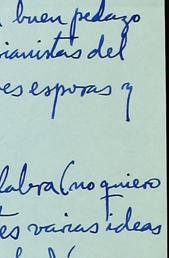 buen pedazo
ianistas del
es esporas y
labra (no quiero
tes varias ideas